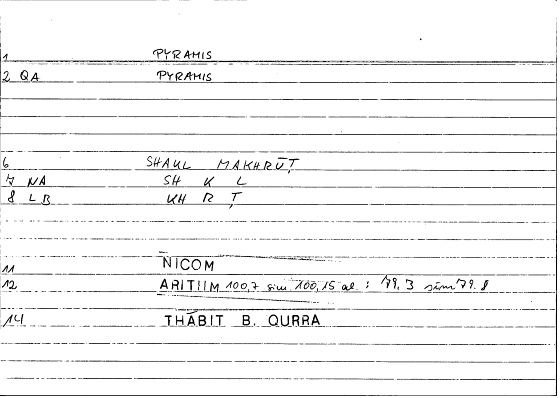 1 PYRAMIS
2 QA PYRAMIS
6 SHAKL MAKHRŪṬ
7 NA SH K L
8 LB KH R Ṭ
11 NICOM
12 ARITHM 100,7 sim. 100,15 al : 79.3 sim 79.8
14 THĀBIT B. QURRA